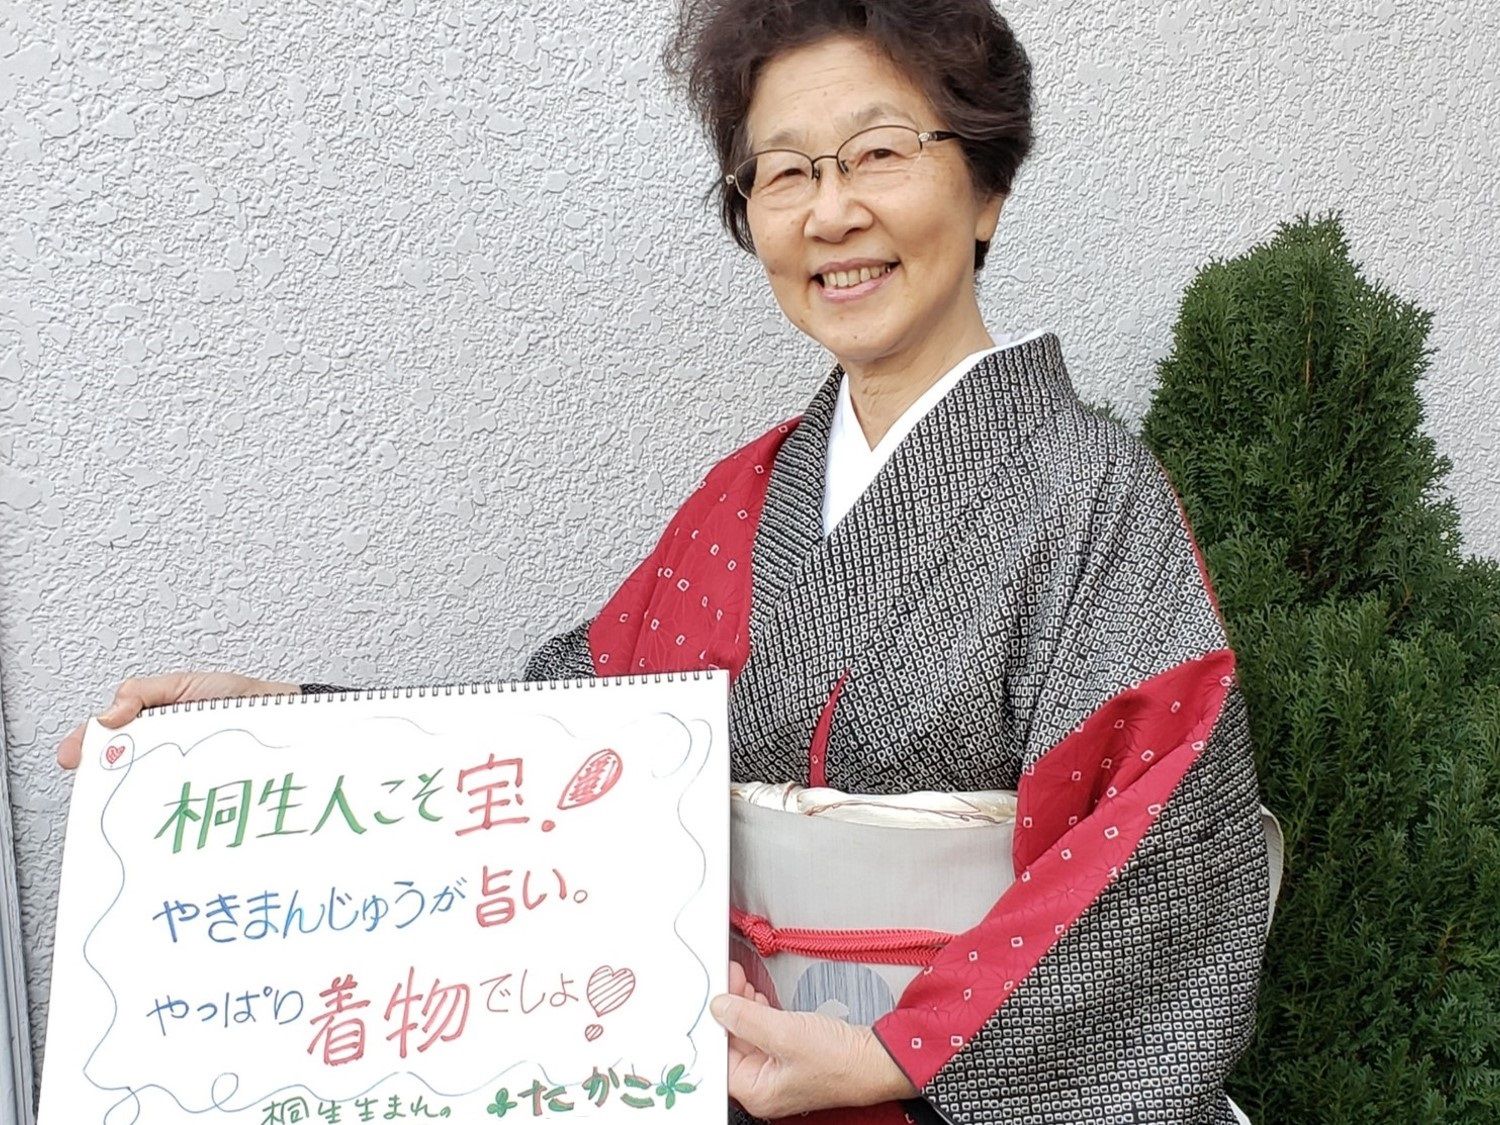 桐生人こそ宝!
やきまんじゅうが旨い。
やっぱり着物でしょ
桐生生まれの たかこ